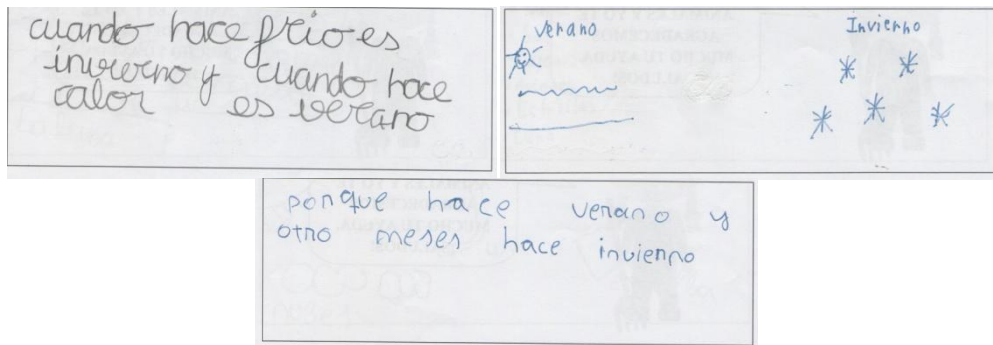 cuando hace frio es
invierno y cuando hace
calor es verano
verano
Invierno
porque hace verano y
otro meses hace invierno